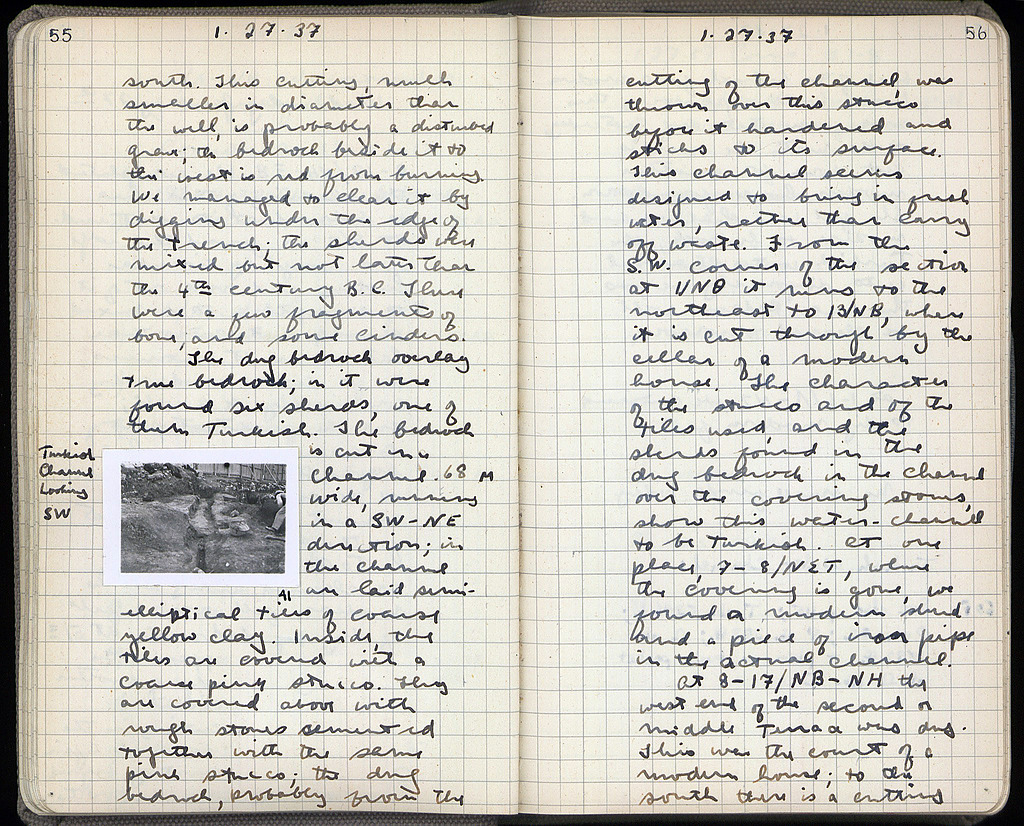 55
1·27·37
south. This cutting, much
smaller in diameter than
the well, is probably a disturbed
grave; the bedrock beside it to
the west is red from burning.
We managed to clear it by
digging under the edge of
the trench; the sherds were
mixed but not later than
the 4th century B.C. There
were a few fragments of
bone, and some cinders.
The dug bedrock overlay
true bedrock; in it were
found six sherds, one of
them Turkish. The bedrock
is cut in a
channel .68 M
wide, running
in a SW-NE
direction; in
the channel
are laid semi-
Turkish
Channel
Looking
SW
A1
elliptical tiles of coarse
yellow clay. Inside, the
tiles are covered with a
coarse pink stucco. They
are covered above with
rough stones cemented
together with the same
pink stucco; the dug
bedrock, probably from the
1·27·37
56
cutting of the channel, was
thrown over this stucco
before it hardened and
sticks to its surface.
This channel seems
designed to bring in fresh
water, rather than carry
off waste. From the
S.W. corner of the section
at 1/NΘ it runs to the
northeast to 13/NB, where
it is cut through by the
cellar of a modern
house. The character
of the stucco and of the
tiles used, and the
sherds found in the
dug bedrock in the channel
over the covering stones,
show this water-channel
to be Turkish. At one
place, 7-8/NΣT, where
the covering is gone, we
found a modern sherd
and a piece of iron pipe
in the actual channel.
At 8-17/NB-NH the
west end of the second or
middle Terrace was dug.
This was the court of a
modern house; to the
south there is a cutting